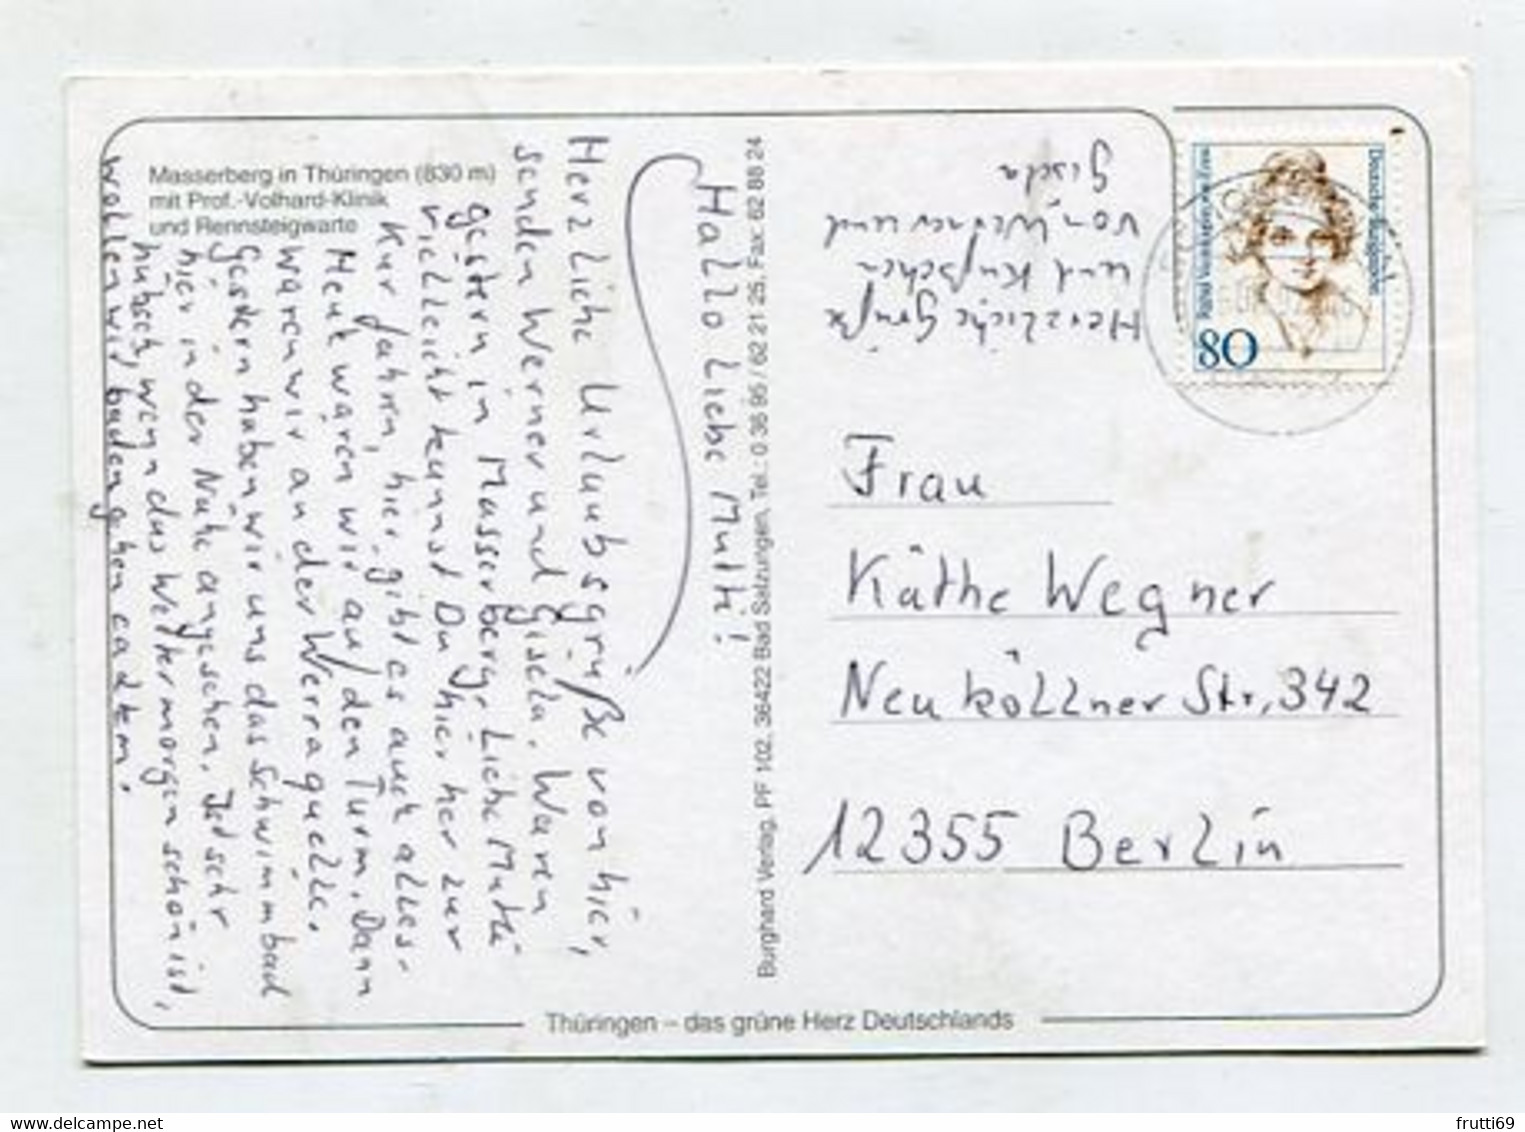 Masserberg in Thüringen (830 m)
mit Prof.-Volhard-Klinik
und Rennsteigwarte
Hallo liebe Mutti!
Herzliche Urlaubsgrüße von hier,
senden Werner und Gisela. Waren
gestern in Masserberg. Liebe Mutti
vielleicht kennst Du hier her zur
Kur fahren, hier gibt es auch alles.
Heut waren wir auf den Turm. Dann
waren wir an der Werraquelle.
Gestern haben wir uns das Schwimmbad
hier in der Nähe angesehen. Ist sehr
hübsch, wenn das Wetter morgen schön ist,
wollen wir baden gehen
Burghard Verlag, PF 102, 36422 Bad Salzungen, Tel.: 0 36 95 / 62 21 25, Fax: 62 88 24
Herzliche Grüße
und Küßchen
von Werner und
Gisela
Deutsche Bundespost
80
Frau
Käthe Wegner
Neuköllner Str. 342
12355 Berlin
Thüringen – das grüne Herz Deutschlands
www.delcampe.net
frutti69